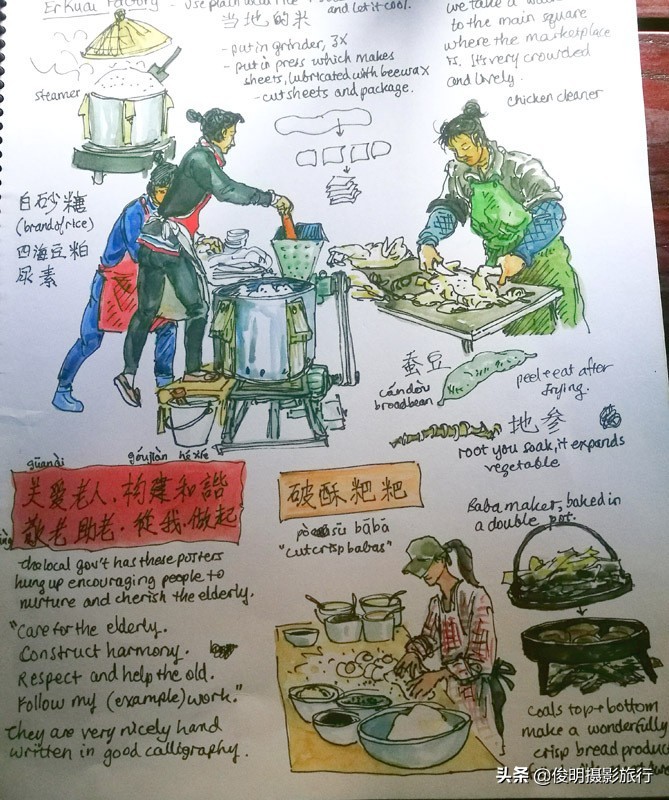 Er Kuai Factory - Use plain local rice
and let it cool.
当地的米
- put in grinder, 3X
- put in press which makes
sheets, lubricated with beewax
- cut sheets and package.
we take a
to the main square
where the marketplace
is. It's very crowded
and lively.
steamer
chicken cleaner
白砂糖
(brand of rice)
四海豆粕
尿素
蚕豆
cándòu
broadbean
peel + eat after
frying.
地参
root you soak, it expands
vegetable
guānài
góujiàn héxié
关爱老人,构建和諧
敬老助老,從我做起
the local gov't has these posters
hung up encouraging people to
nurture and cherish the elderly.
"Care for the elderly.
Construct harmony.
Respect and help the old.
Follow my (example) work."
They are very nicely hand
written in good calligraphy.
破酥粑粑
pò sū bābā
"cut crisp babas"
Baba maker, baked in
a double pot.
Coals top + bottom
make a wonderfully
crisp bread produc
头条 @俊明摄影旅行